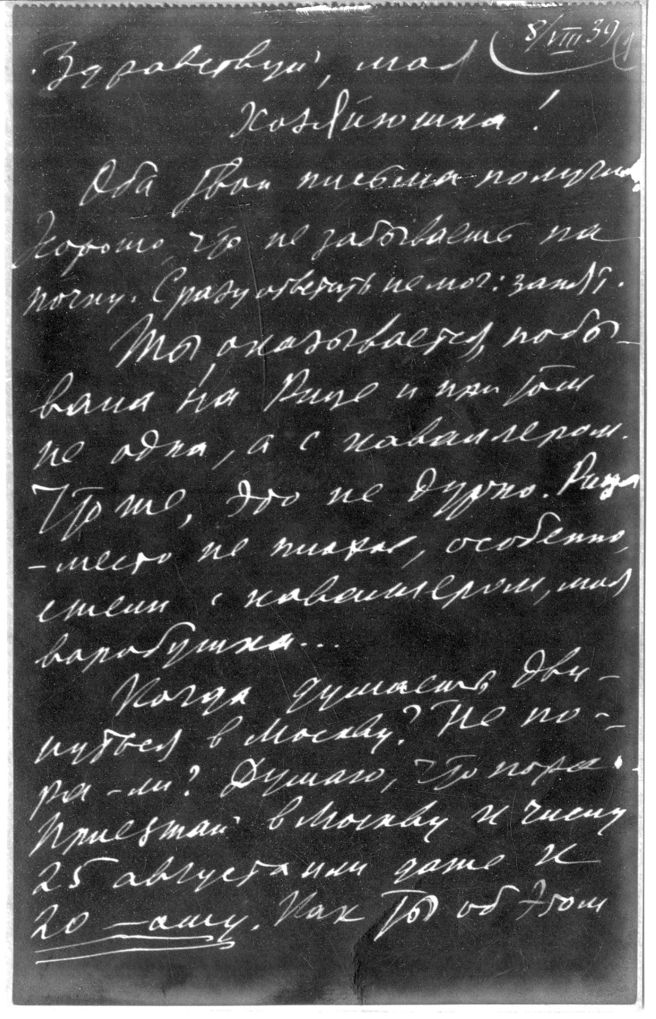 8/VIII 39
Здравствуй, моя
хозяйюшка!
Оба твои письма получил.
Хорошо, что не забываешь па-
почку. Сразу ответить не мог: занят.
Ты, оказывается, побы-
вала на Рице и при том
не одна, а с каваллером.
Что же, это не дурно. Рица
– место не плохое, особенно,
ежели с каваллером, моя
воробушка...
Когда думаешь дви-
нуться в Москву? Не по-
ра-ли? Думаю, что пора.
Приезжай в Москву к числу
25 августа или даже к
20-ому. Как ты об этом